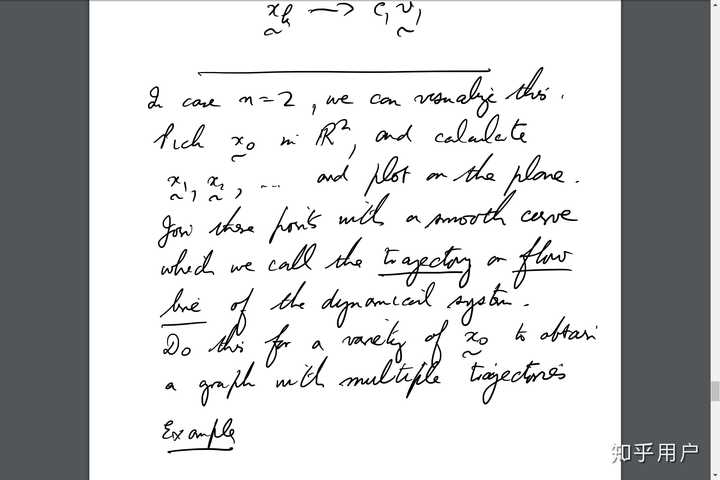 x_k → c_1 v_1
In case n=2, we can visualize this.
Pick x_0 in ℝ², and calculate
x_1, x_2, ... and plot on the plane.
Join these points with a smooth curve
which we call the trajectory or flow
line of the dynamical system.
Do this for a variety of x_0 to obtain
a graph with multiple trajectories
Example
知乎用户